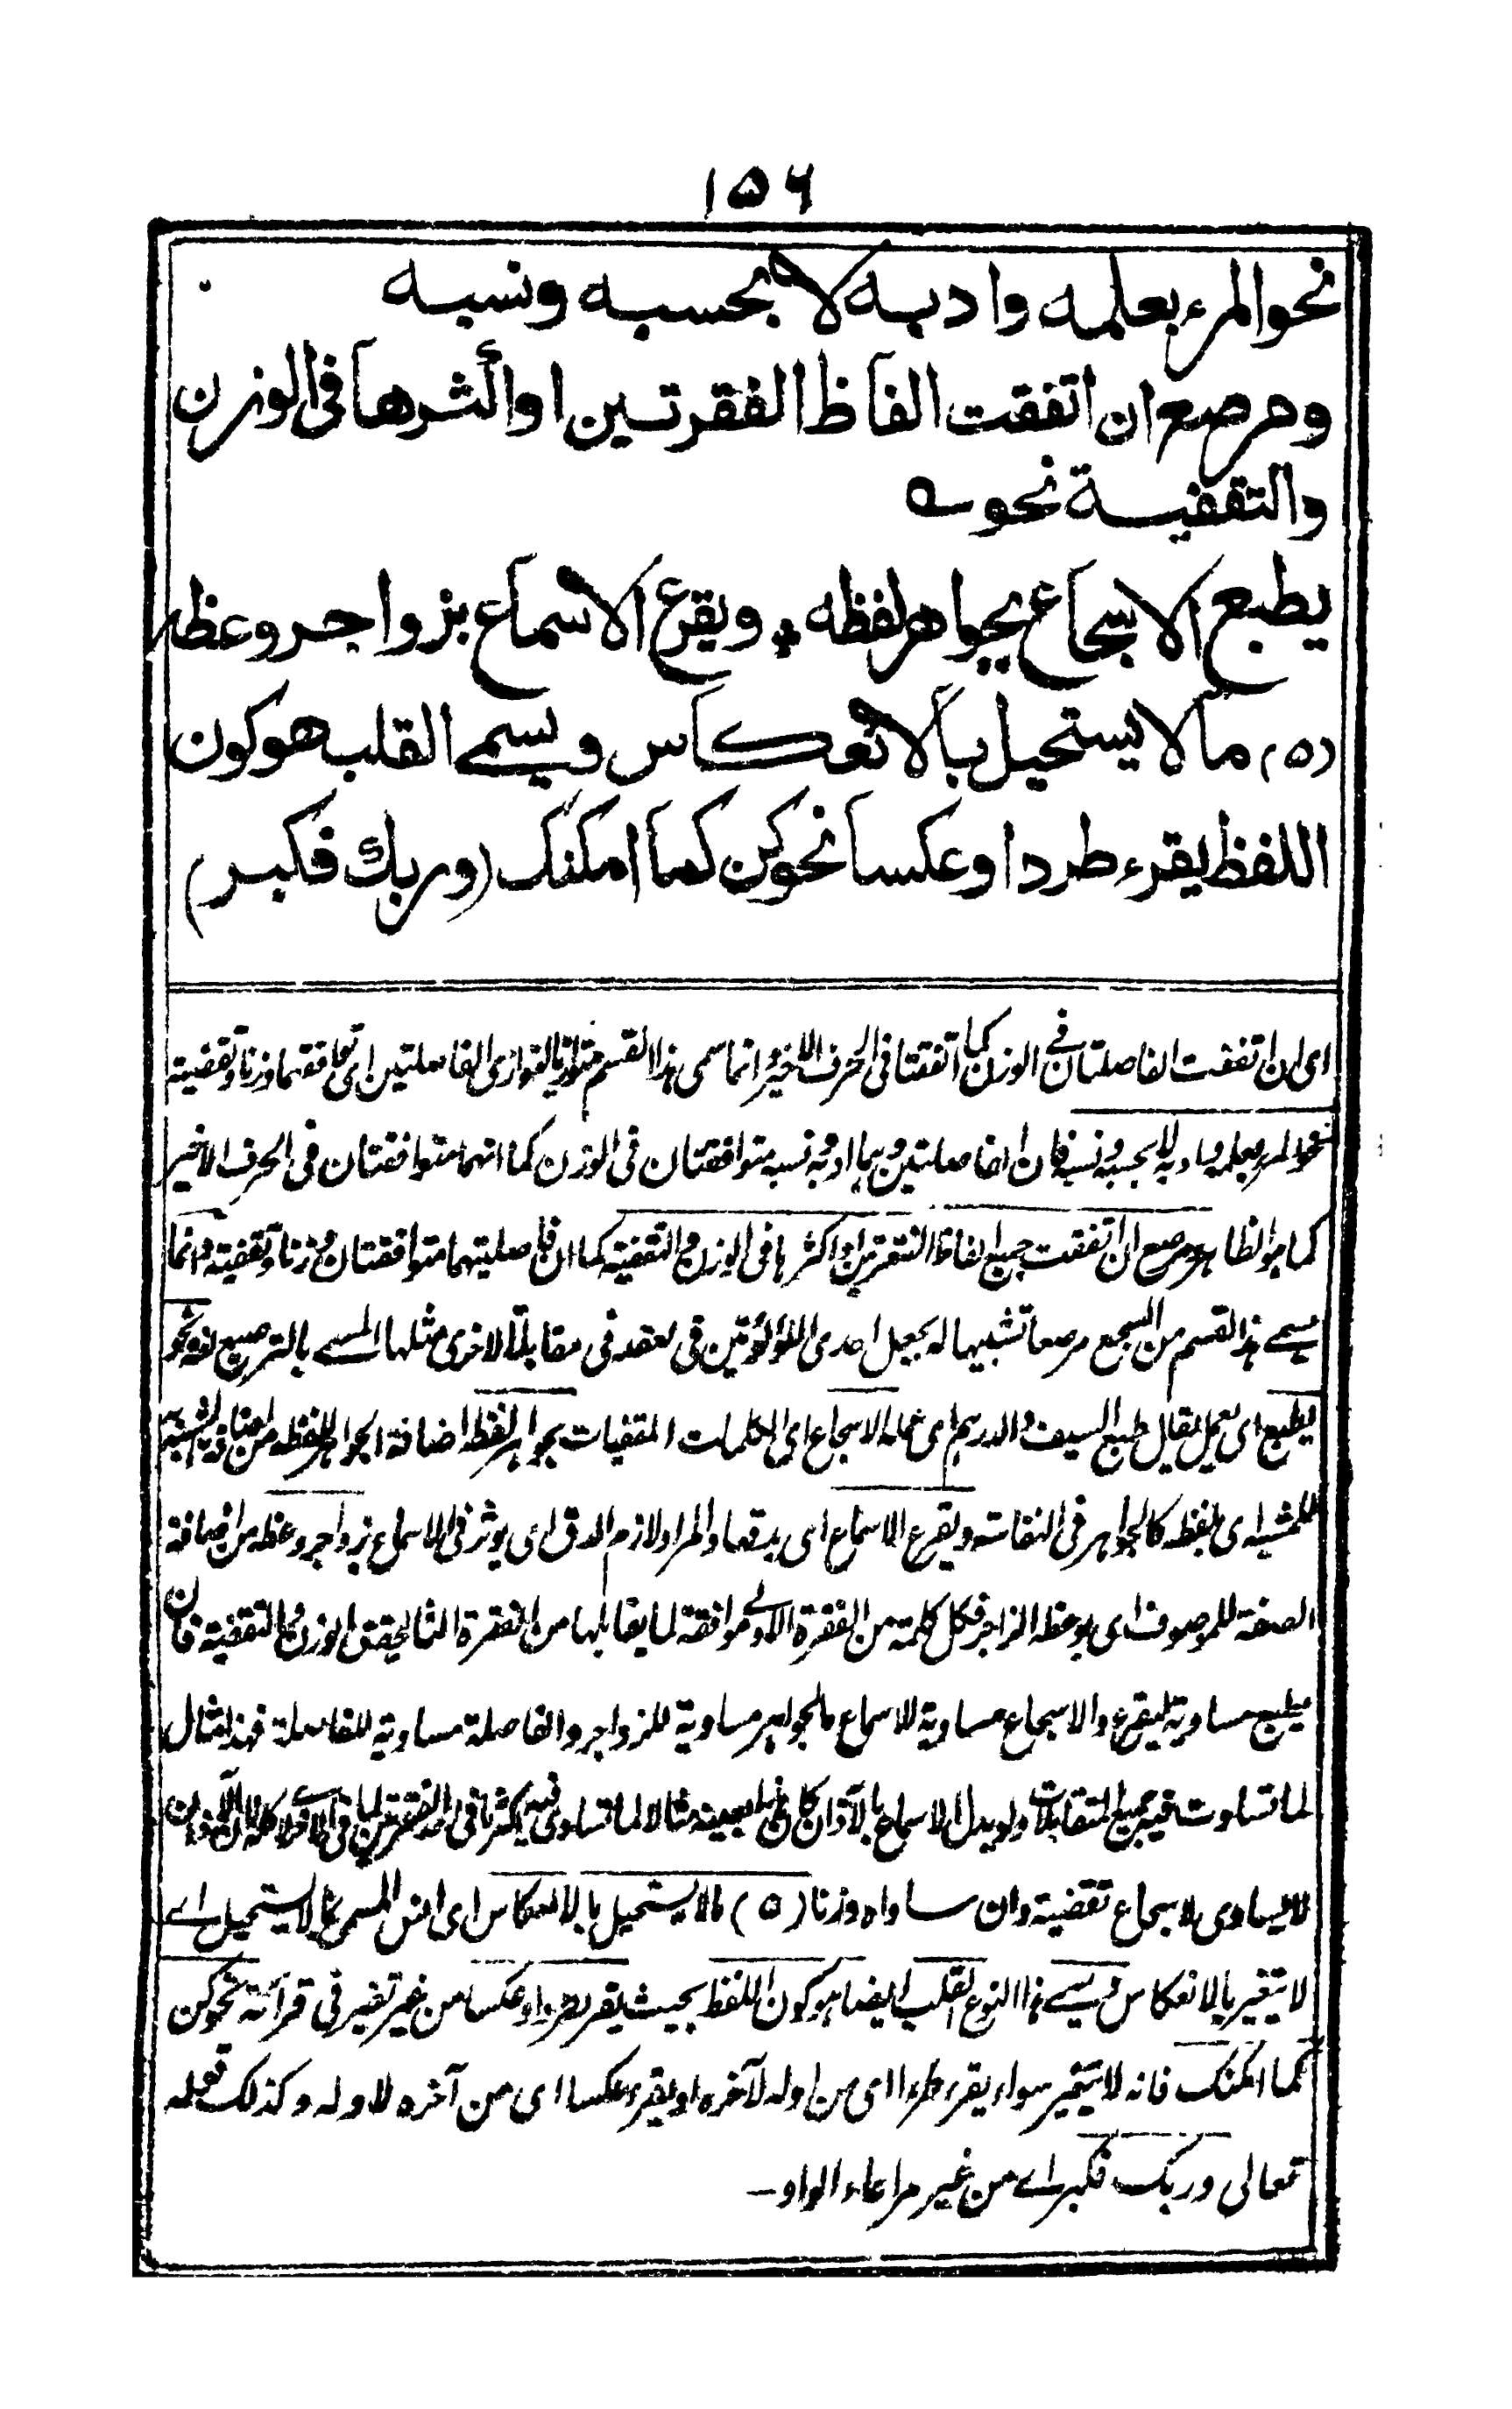 ١٥٦
نحو المرء بعلمه وادبه لا بحسبه ونسبه
ومرصع ان اتفقت الفاظ الفقرتين او اكثرها فى الوزن
والتقفية نحو
يطبع الاسجاع بجواهر لفظه ٭ ويقرع الاسماع بزواجر وعظه
(٥) ما لا يستحيل بالانعكاس ويسمے القلب هو كون
اللفظ يقرء طردا وعكسا نحو كن كما امكنك (وربك فكبر)
اى ان اتفقت الفاصلتان فے الوزن كما اتفقتا فى الحرف الاخير وانما سمى هذا القسم متوازيا لتوازى الفاصلتين اى توافقهما وزنا وتقفية
نحو المرء بعلمه وادبه لا بحسبه ونسبه فان الفاصلتين وهما ادبه ونسبه متوافقتان فى الوزن كما انهما متوافقتان فى الحرف الاخير
كما هو الظاهر ومرصع ان اتفقت جميع الفاظ الفقرتين او اكثرها فى الوزن والتقفية كما ان فاصلتيهما متوافقتان وزنا وتقفية وانما
يسمے هذا القسم من السجع مرصعا تشبيها له بجعل احدى اللؤلؤتين فى العقد فى مقابلة الاخرى مثلها المسمے بالترصيع لغة نحو
يطبع اى يعمل يقال طبع السيف والدرهم اى عمله الاسجاع اى الكلمات المقفيات بجواهر لفظه اضافة الجواهر للفظه من اضافة المشبه به
للمشبه اى بلفظه كالجواهر فى النفاسة ويقرع الاسماع اى يدقها والمراد لازم الدق اى يوثر فى الاسماع بزواجر وعظه من اضافة
الصفة للموصوف اى بوعظه الزاجر فكل كلمة من الفقرة الاولے موافقة لما يقابلها من الفقرة الثانية تحقق الوزن والتقفية فان
يطبع مساوية ليقرع والاسجاع مساوية للاسماع والجواهر مساوية للزواجر والفاصلة مساوية للفاصلة فهذا مثال
لما تساوت فيه جميع المتقابلات ولو بدل الاسماع بالآذان كان هذا بعينه مثالا لما تساوى فيه اكثر ما فى الفقرتين لما فى الاخرے لا كله لان الآذان
لا يساوى الاسجاع تقفية وان ساواه وزنا (٥) ما لا يستحيل بالانعكاس اى الفن المسمى بما لا يستحيل اے
لا يتغير بالانعكاس ويسمے هذا النوع القلب ايضا هو كون اللفظ بحيث يقرء طردا وعكسا من غير تغير فى قرائته نحو كن
كما امكنك فانه لا يتغير سواء يقرء طردا اى من اوله لآخره او يقرء عكسا اى من آخره لاوله وكذلك قوله
تعالى وربك فكبر اے من غير مراعاء الواو —